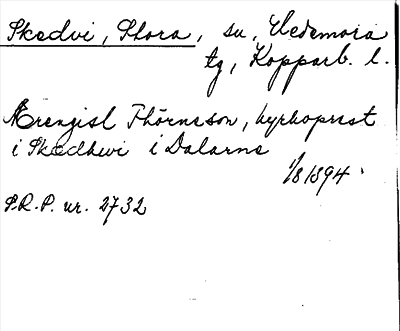 Skedvi, Stora, sn, Hedemora
tg, Kopparb. l.
Ærengisl Thörnason, kyrkoprest
i Skædhwi i Dalarne
1/8 1394
S.R.P. nr. 2732